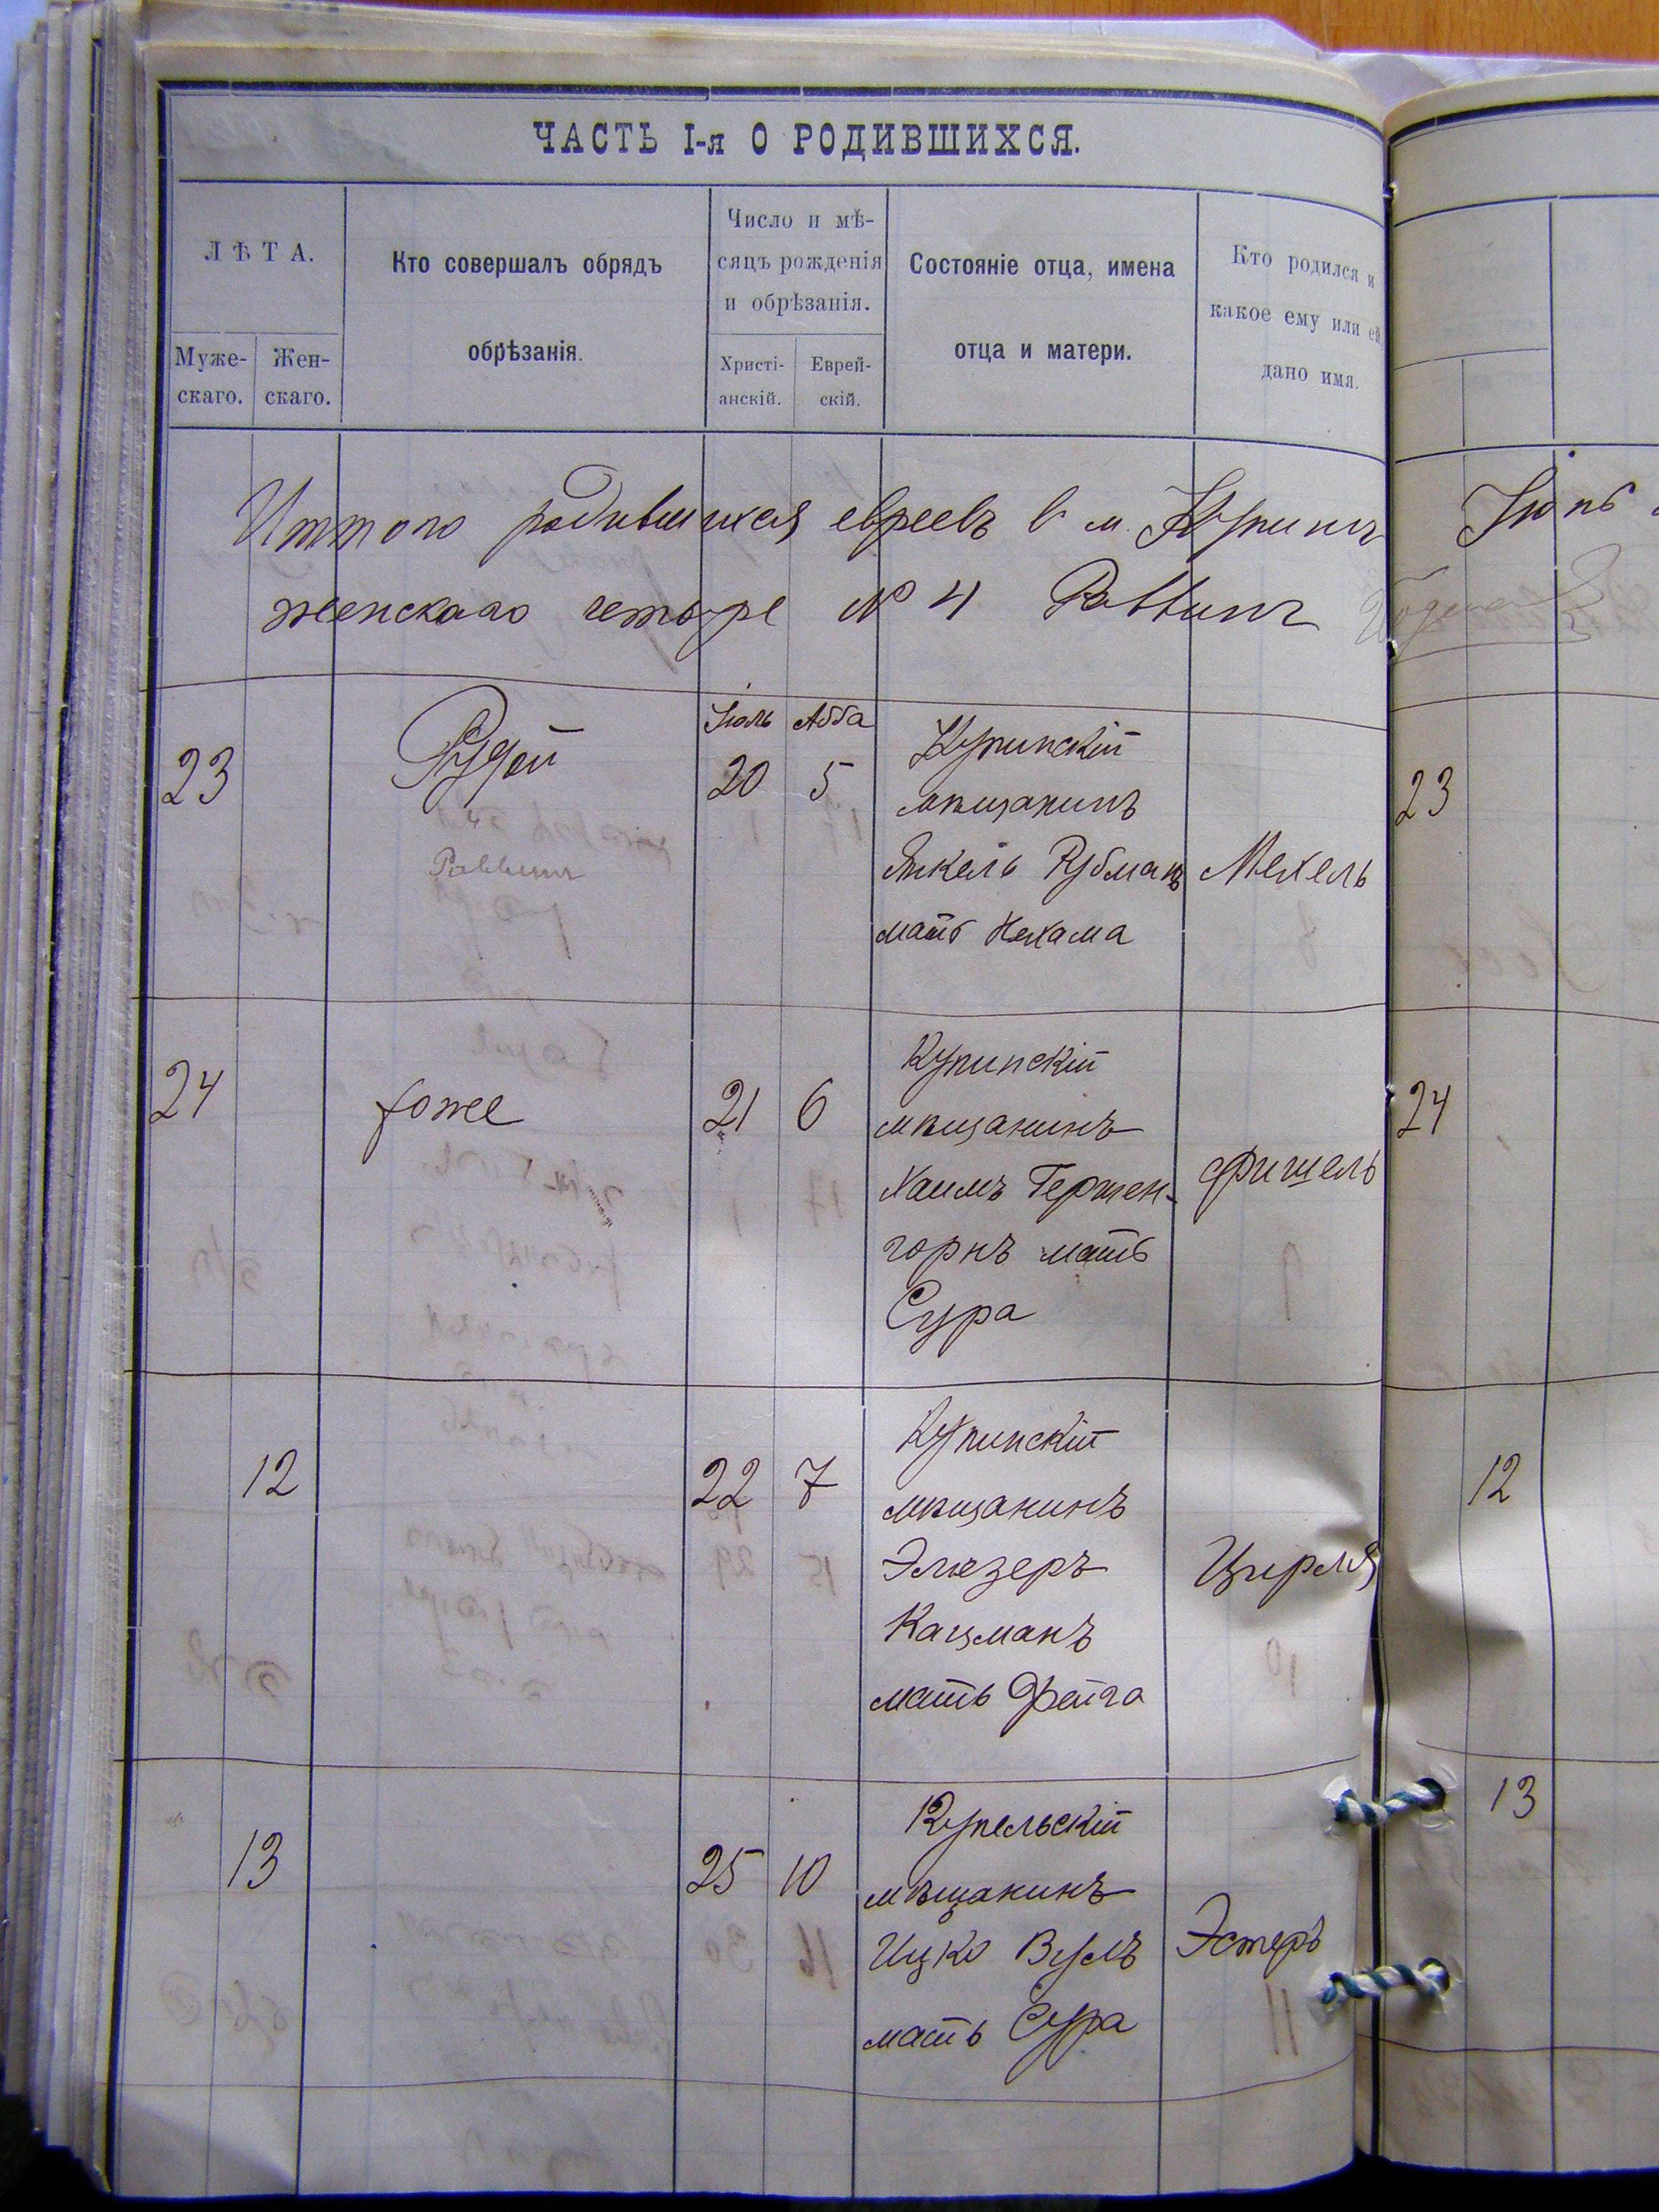 ЧАСТЬ I-я О РОДИВШИХСЯ.
ЛѢТА.
Муже-
скаго.
Жен-
скаго.
Кто совершалъ обрядъ
обрѣзанія.
Число и мѣ-
сяцъ рожденія
и обрѣзанія.
Христі-
анскій.
Еврей-
скій.
Состояніе отца, имена
отца и матери.
Кто родился и
какое ему или ей
дано имя.
Иттого родившихся евреевъ в м. Купинъ
женскаго четыре № 4 Раввинъ
23
Рудой
Раввинъ
Іюль Абба
20 5
Купинскій
мѣщанинъ
Янкель Рубманъ
мать Нехама
Мехель
24
тоже
21 6
Купинскій
мѣщанинъ
Хаимъ Гершен-
горнъ мать
Сура
Фишель
12
22 7
Купинскій
мѣщанинъ
Элюзеръ
Кацманъ
мать Фейга
Цирля
13
25 10
Купельскій
мѣщанинъ
Ицко Вулъ
мать Сура
Эстеръ
23
24
12
13